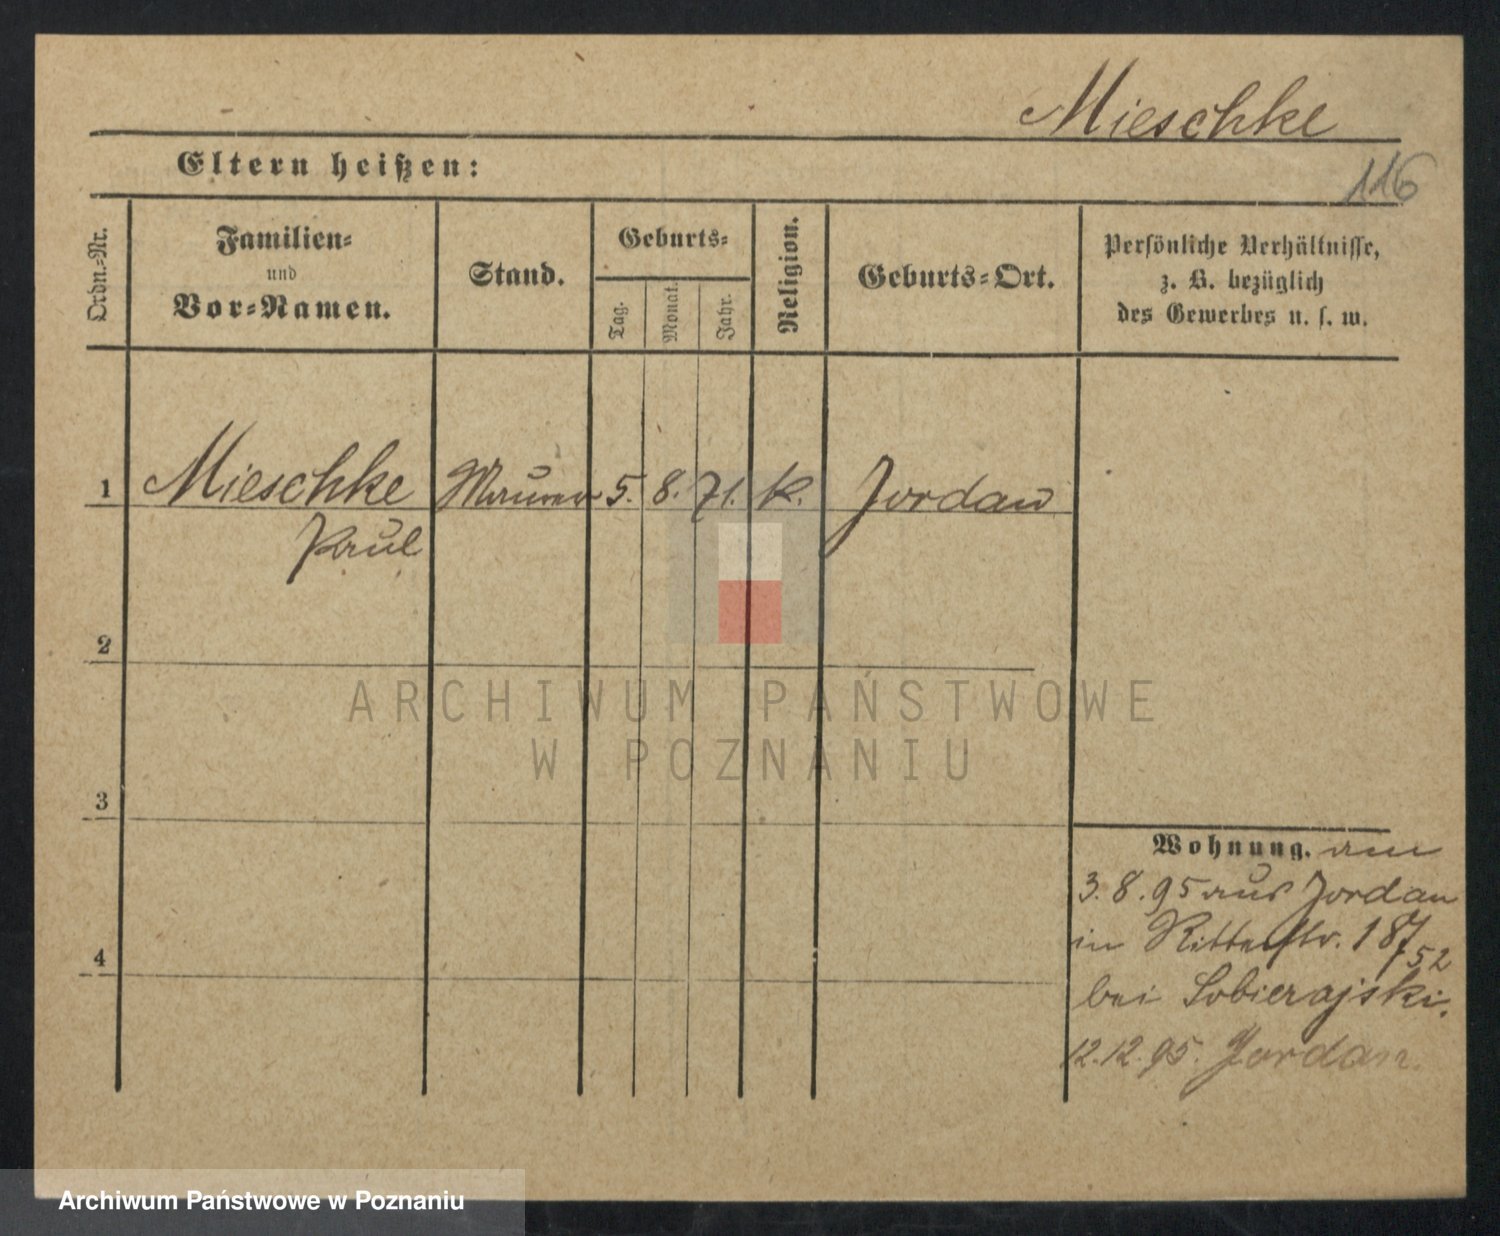 Mieschke
Eltern heißen:
116
Ordn.-Nr.
Familien-
und
Vor-Namen.
Stand.
Geburts-
Tag.
Monat.
Jahr.
Religion.
Geburts-Ort.
Persönliche Verhältnisse,
z. B. bezüglich
des Gewerbes u. s. w.
1 Mieschke Maurer 5. 8. 71. k. Jordan
Paul
2
3
4
Wohnung. am
3. 8. 95 aus Jordan
in Ritterstr. 187/52
bei Sobierajski.
12.12.95. Jordan.
ARCHIWUM PAŃSTWOWE
W POZNANIU
Archiwum Państwowe w Poznaniu